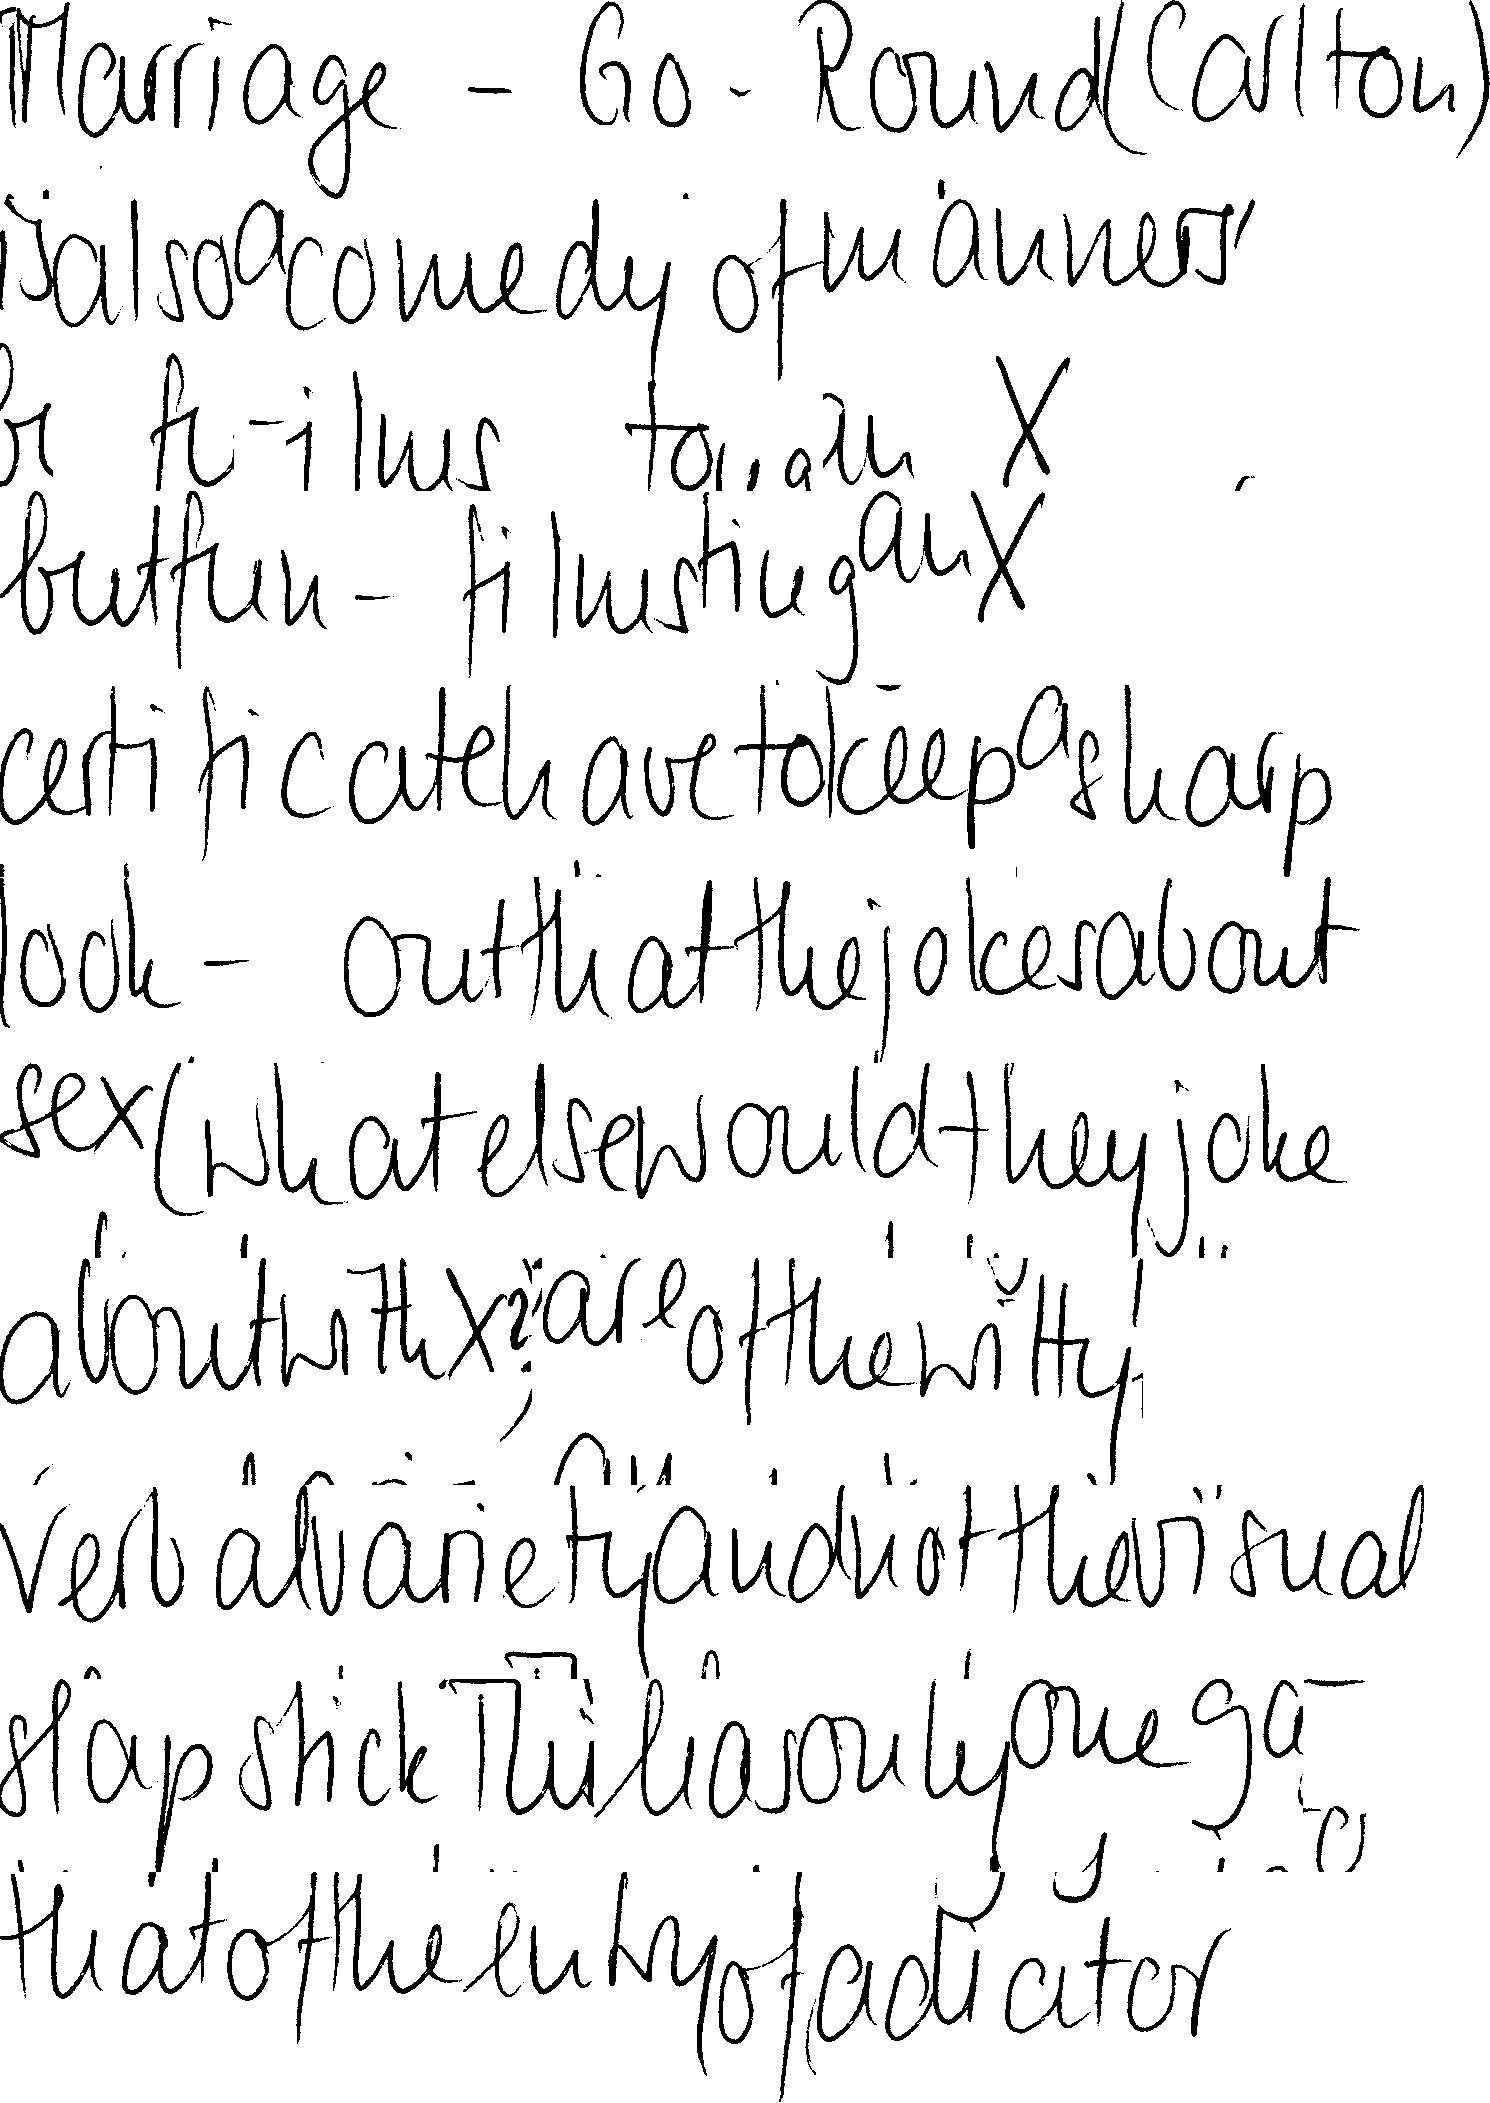 Marriage - Go - Round (Carlton)
is also a comedy of manners
but fun - films ting an X
certificate have to keep a sharp
look - out that the jokes about
sex (what else would they joke
about with X ? ) are of the witty,
verbal variety and not the visual
slapstick This has only one ga
that of the entry of a dictator